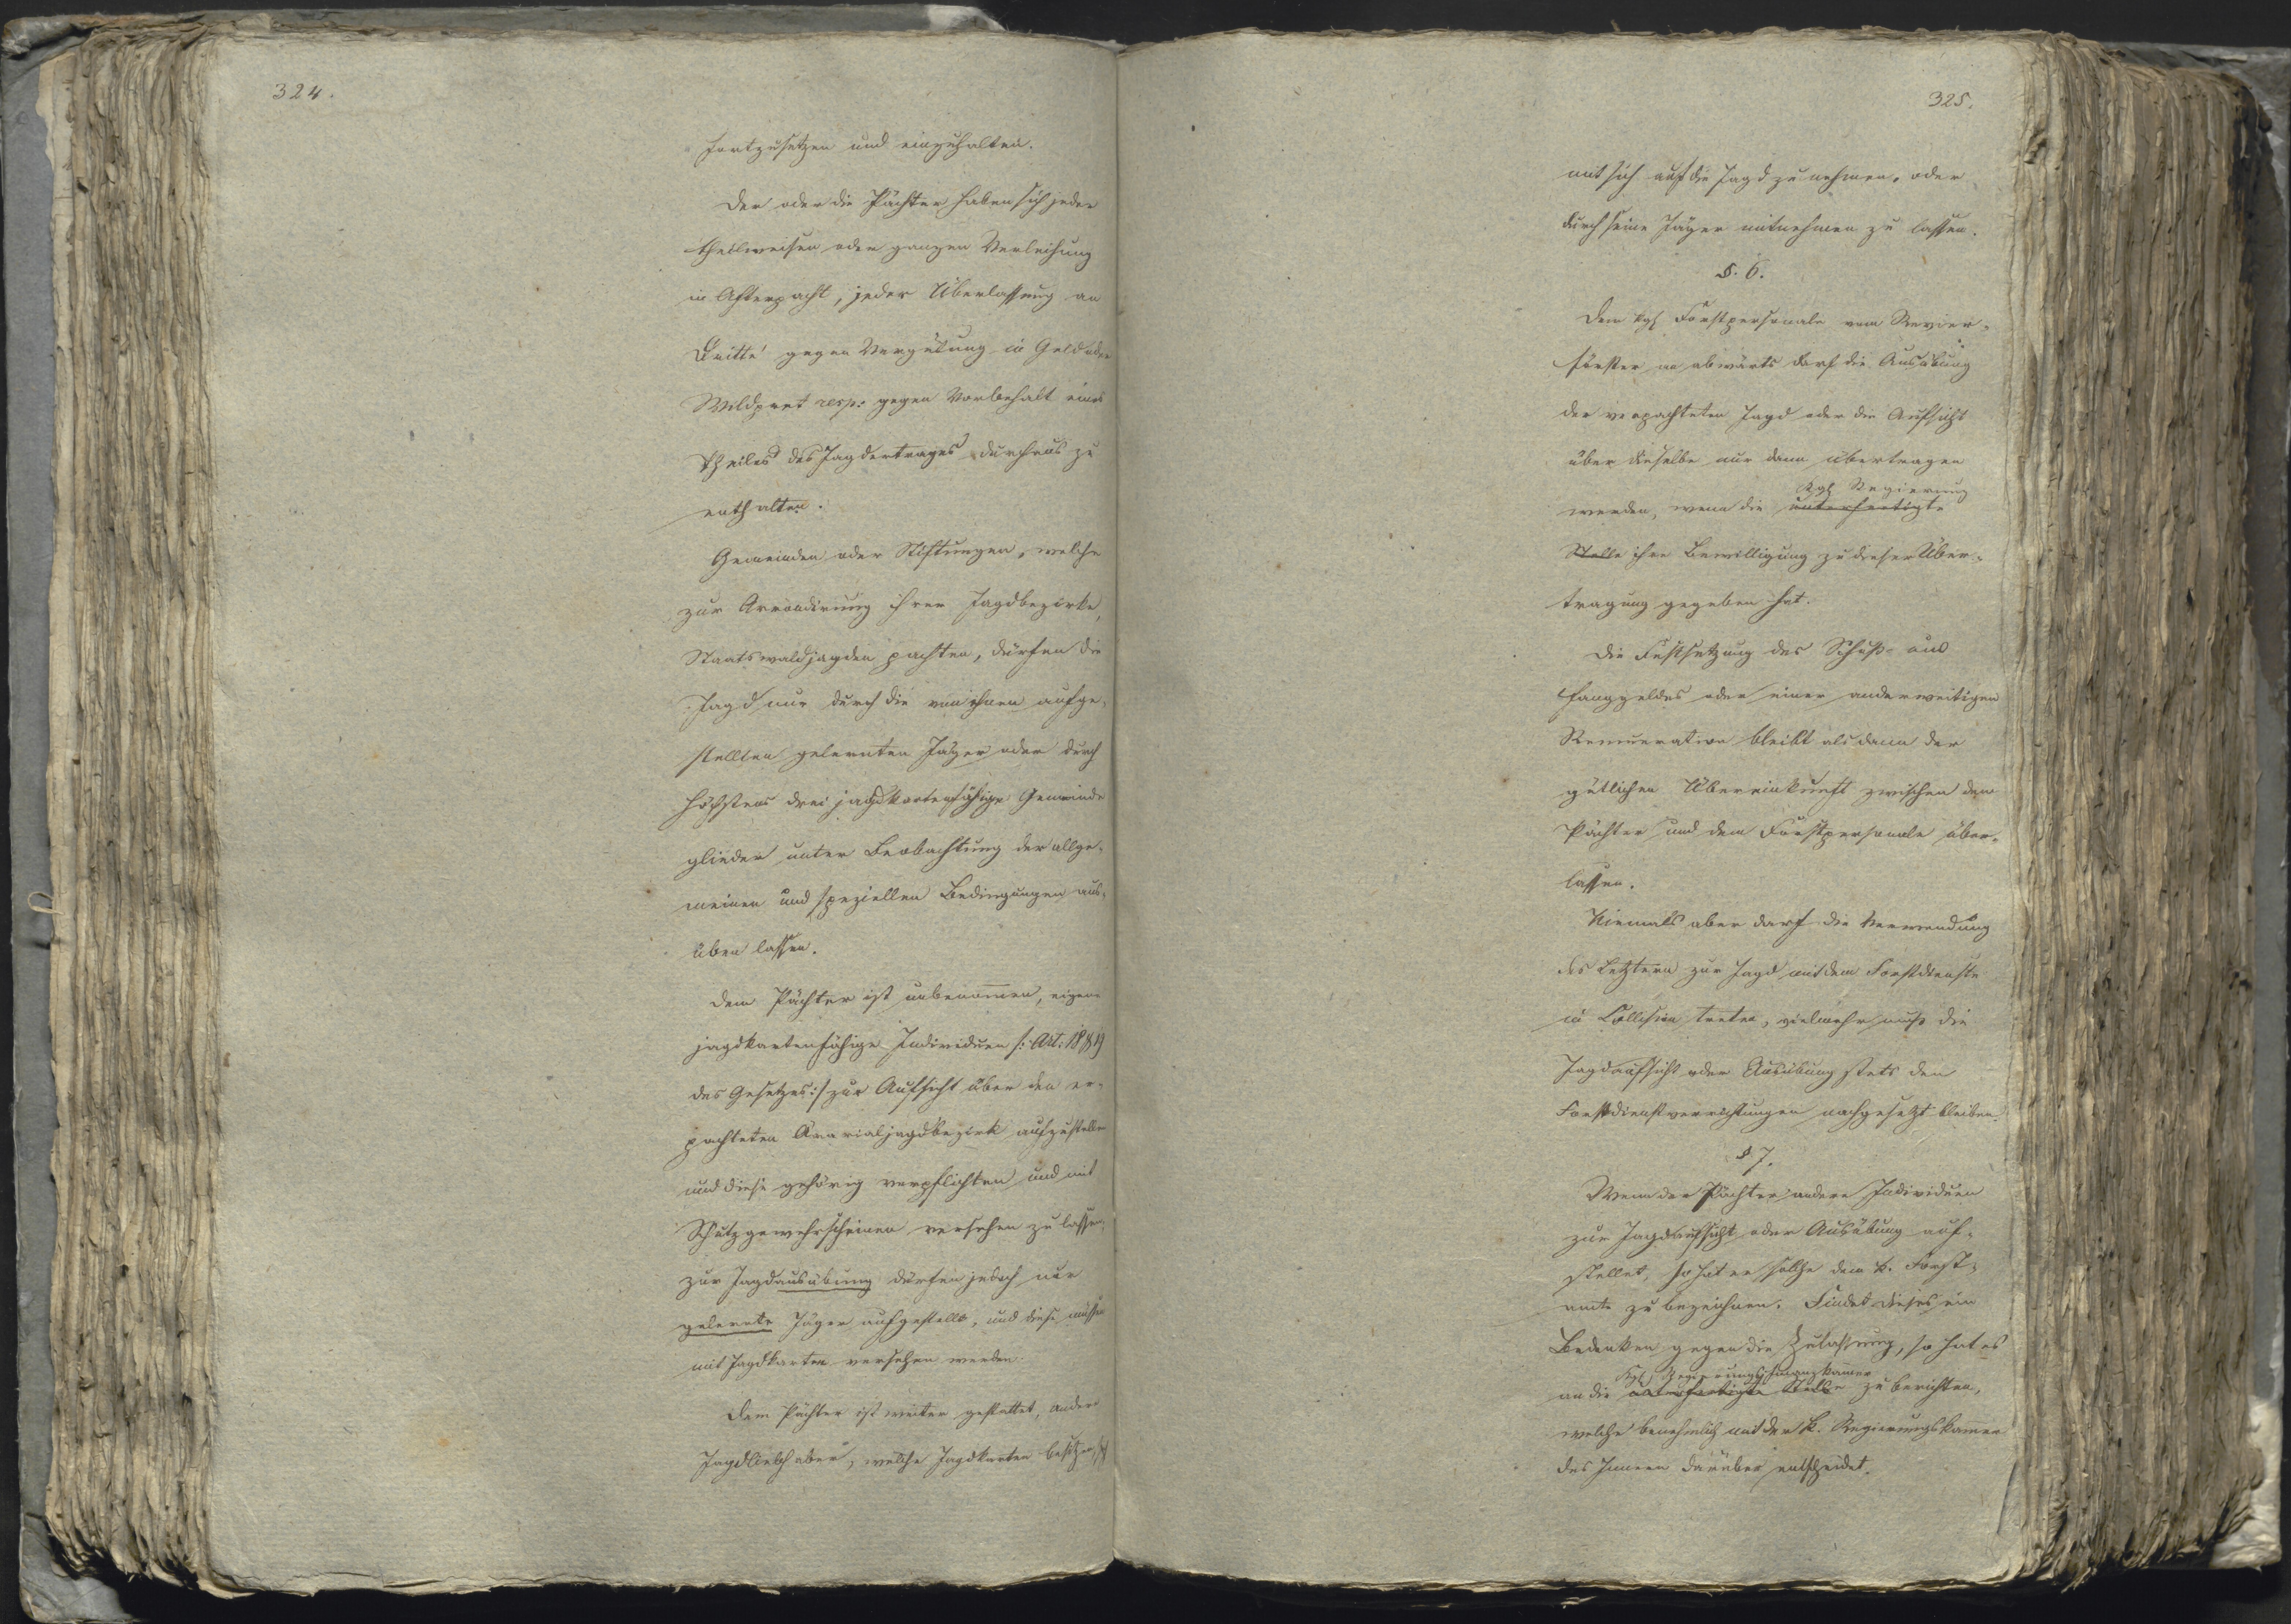 324.
fortzusetzen und einzuhalten.
Der oder die Pächter haben sich jeder
theilweisen oder ganzen Verleihung
in Afterpacht, jeder Überlassung an
Dritte gegen Vergütung in Geld oder
Wildpret resp: gegen Vorbehalt eines
Theiles des Jagdertrages durchaus zu
enthalten.
Gemeinden oder Stiftungen, welche
zur Arrondirung ihrer Jagdbezirke,
Staatswaldjagden pachten, dürfen die
Jagd nur durch die von ihnen aufge-
stellten gelernten Jäger oder durch
höchstens drei jagdkartenfähige Gemeinde
glieder unter Beobachtung der allge-
meinen und speziellen Bedingungen aus-
üben lassen.
Dem Pächter ist unbenommen, eigene
jagdkartenfähige Individuen /: Art: 18
des Gesetzes :/ zur Aufsicht über den er-
pachteten Ärarialjagdbezirk aufzustellen
und diese gehörig verpflichten und mit
Schutzgewehrscheinen versehen zu lassen;
zur Jagdausübung dürfen jedoch nur
gelernte Jäger aufgestellt, und diese müssen
mit Jagdkarten versehen werden.
Dem Pächter ist weiter gestattet, andere
Jagdliebhaber, welche Jagdkarten besitzen,
325.
mit sich auf die Jagd zu nehmen, oder
durch seine Jäger mitnehmen zu lassen.
§. 6.
Dem kgl Forstpersonale vom Revier-
förster an abwärts darf die Ausübung
der verpachteten Jagd oder die Aufsicht
über dieselbe nur dann übertragen
kgl Regierung
werden, wenn die unterfertigte
Stelle ihre Bewilligung zu dieser Über-
tragung gegeben hat.
Die Festsetzung des Schuß- und
Fanggeldes oder einer anderweitigen
Remuneration bleibt alsdann der
gütlichen Übereinkunft zwischen dem
Pächter und dem Forstpersonale über-
lassen.
Niemals aber darf die Verwendung
des Letztern zur Jagd mit dem Forstdienste
in Collision treten, vielmehr muß die
Jagdaufsicht oder Ausübung stets den
Forstdienstverrichtungen nachgesetzt bleiben.
§ 7.
Wenn der Pächter andere Individuen
zur Jagdaufsicht oder Ausübung auf-
stellet, so hat er solche dem k. Forst-
amte zu bezeichnen. Findet dieses ein
Bedenken gegen die Zulassung, so hat es
kgl Regierungsfinanzkammer
an die unterfertigte Stelle zu berichten,
welche benehmlich mit der k. Regierungskammer
des Innern darüber entscheidet.